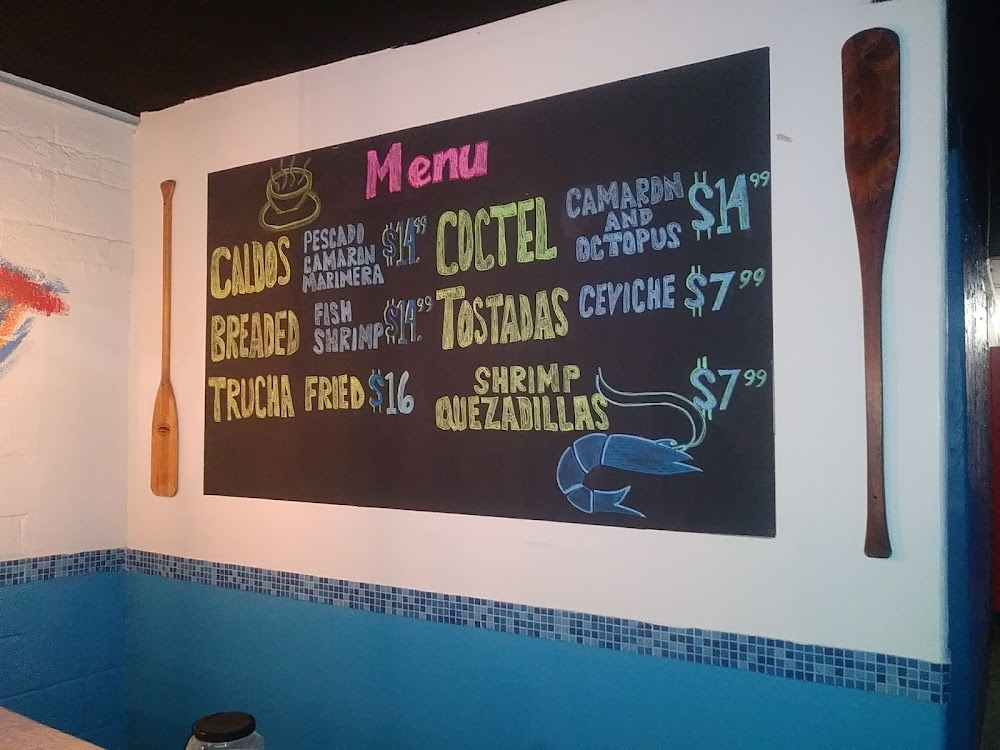 Menu
CALDOS PESCADO CAMARON MARINERA $14.99
BREADED FISH SHRIMP $14.99
TRUCHA FRIED $16
COCTEL CAMARON AND OCTOPUS $14.99
TOSTADAS CEVICHE $7.99
SHRIMP QUEZADILLAS $7.99